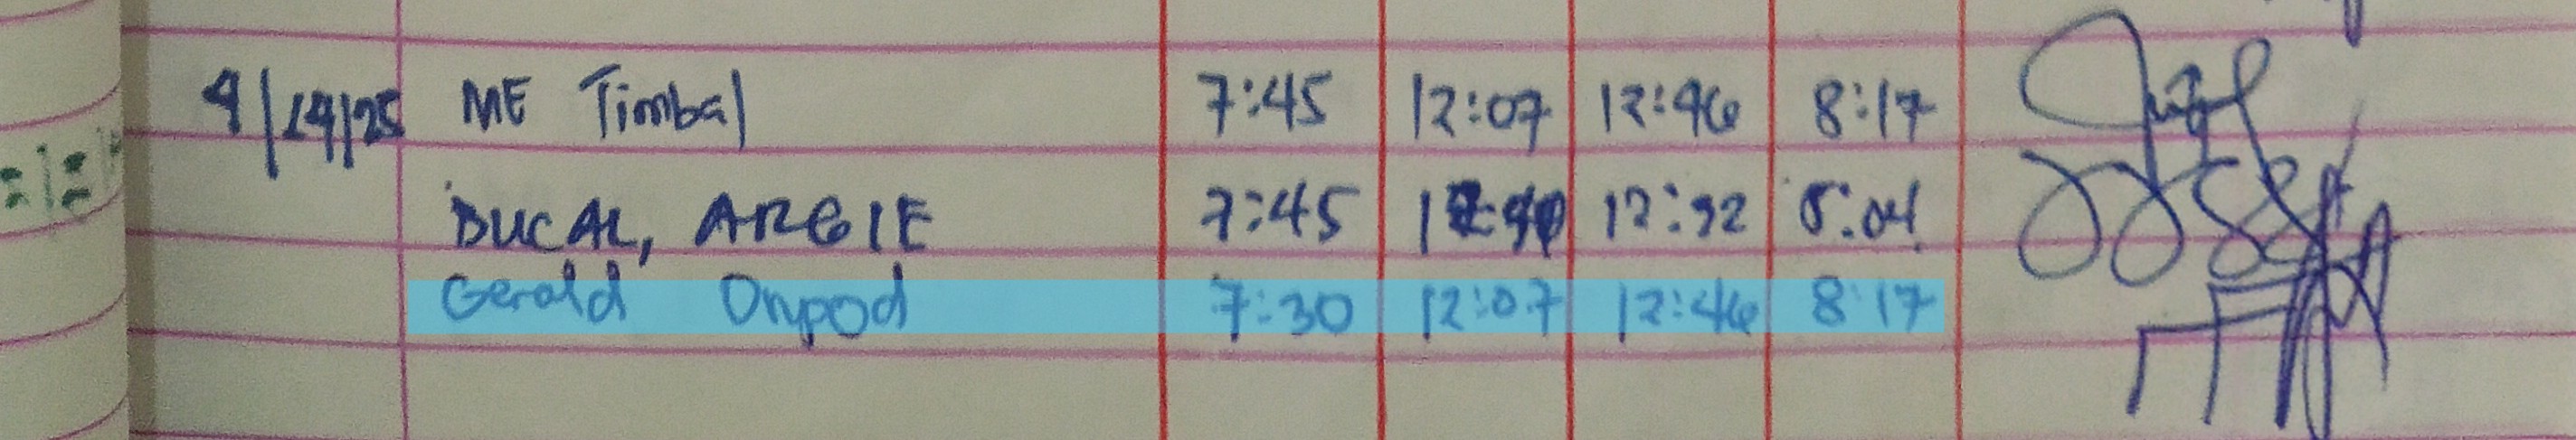 4/29/25 ME Timbal 7:45 12:07 12:46 8:17
DUCAL, ARGIE 7:45 12:32 5:04
Gerald Onpod 7:30 12:07 12:46 8:17